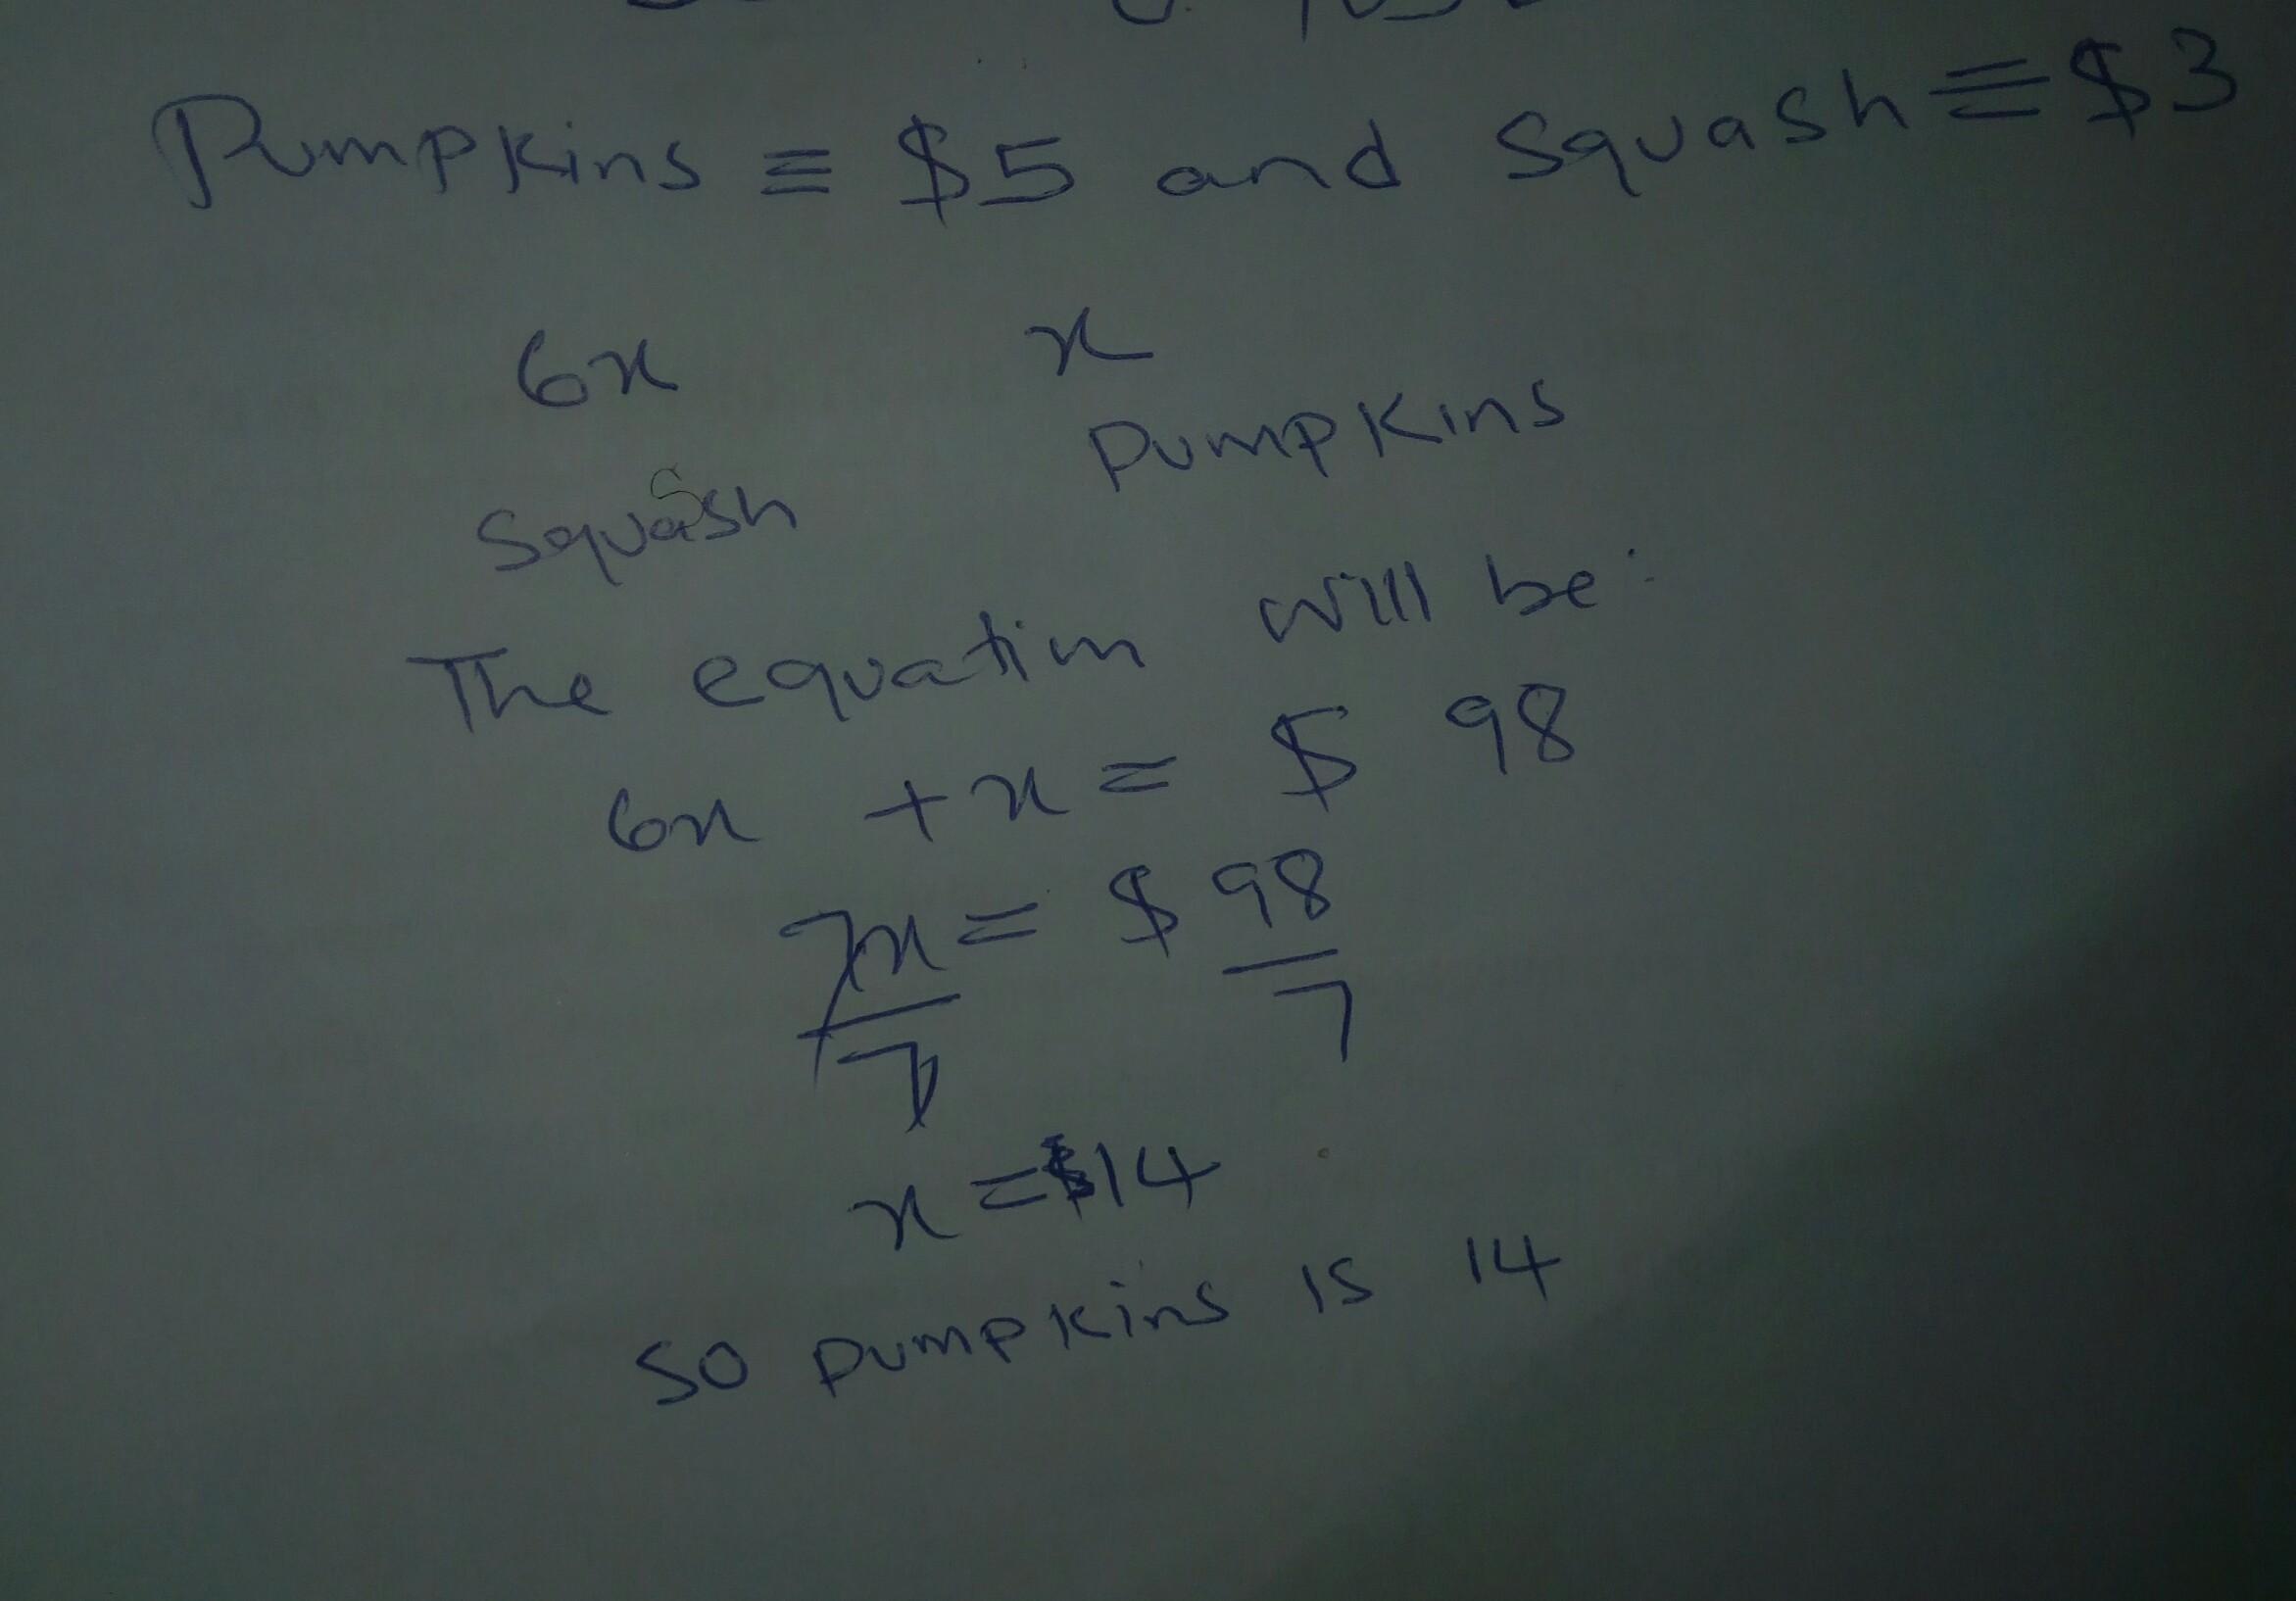 Pumpkins ≡ $5 and Squash ≡ $3
6x x
Squash Pumpkins
The equation will be:
6x + x = $ 98
7x = $ 98
7 7
x = $14
So pumpkins is 14